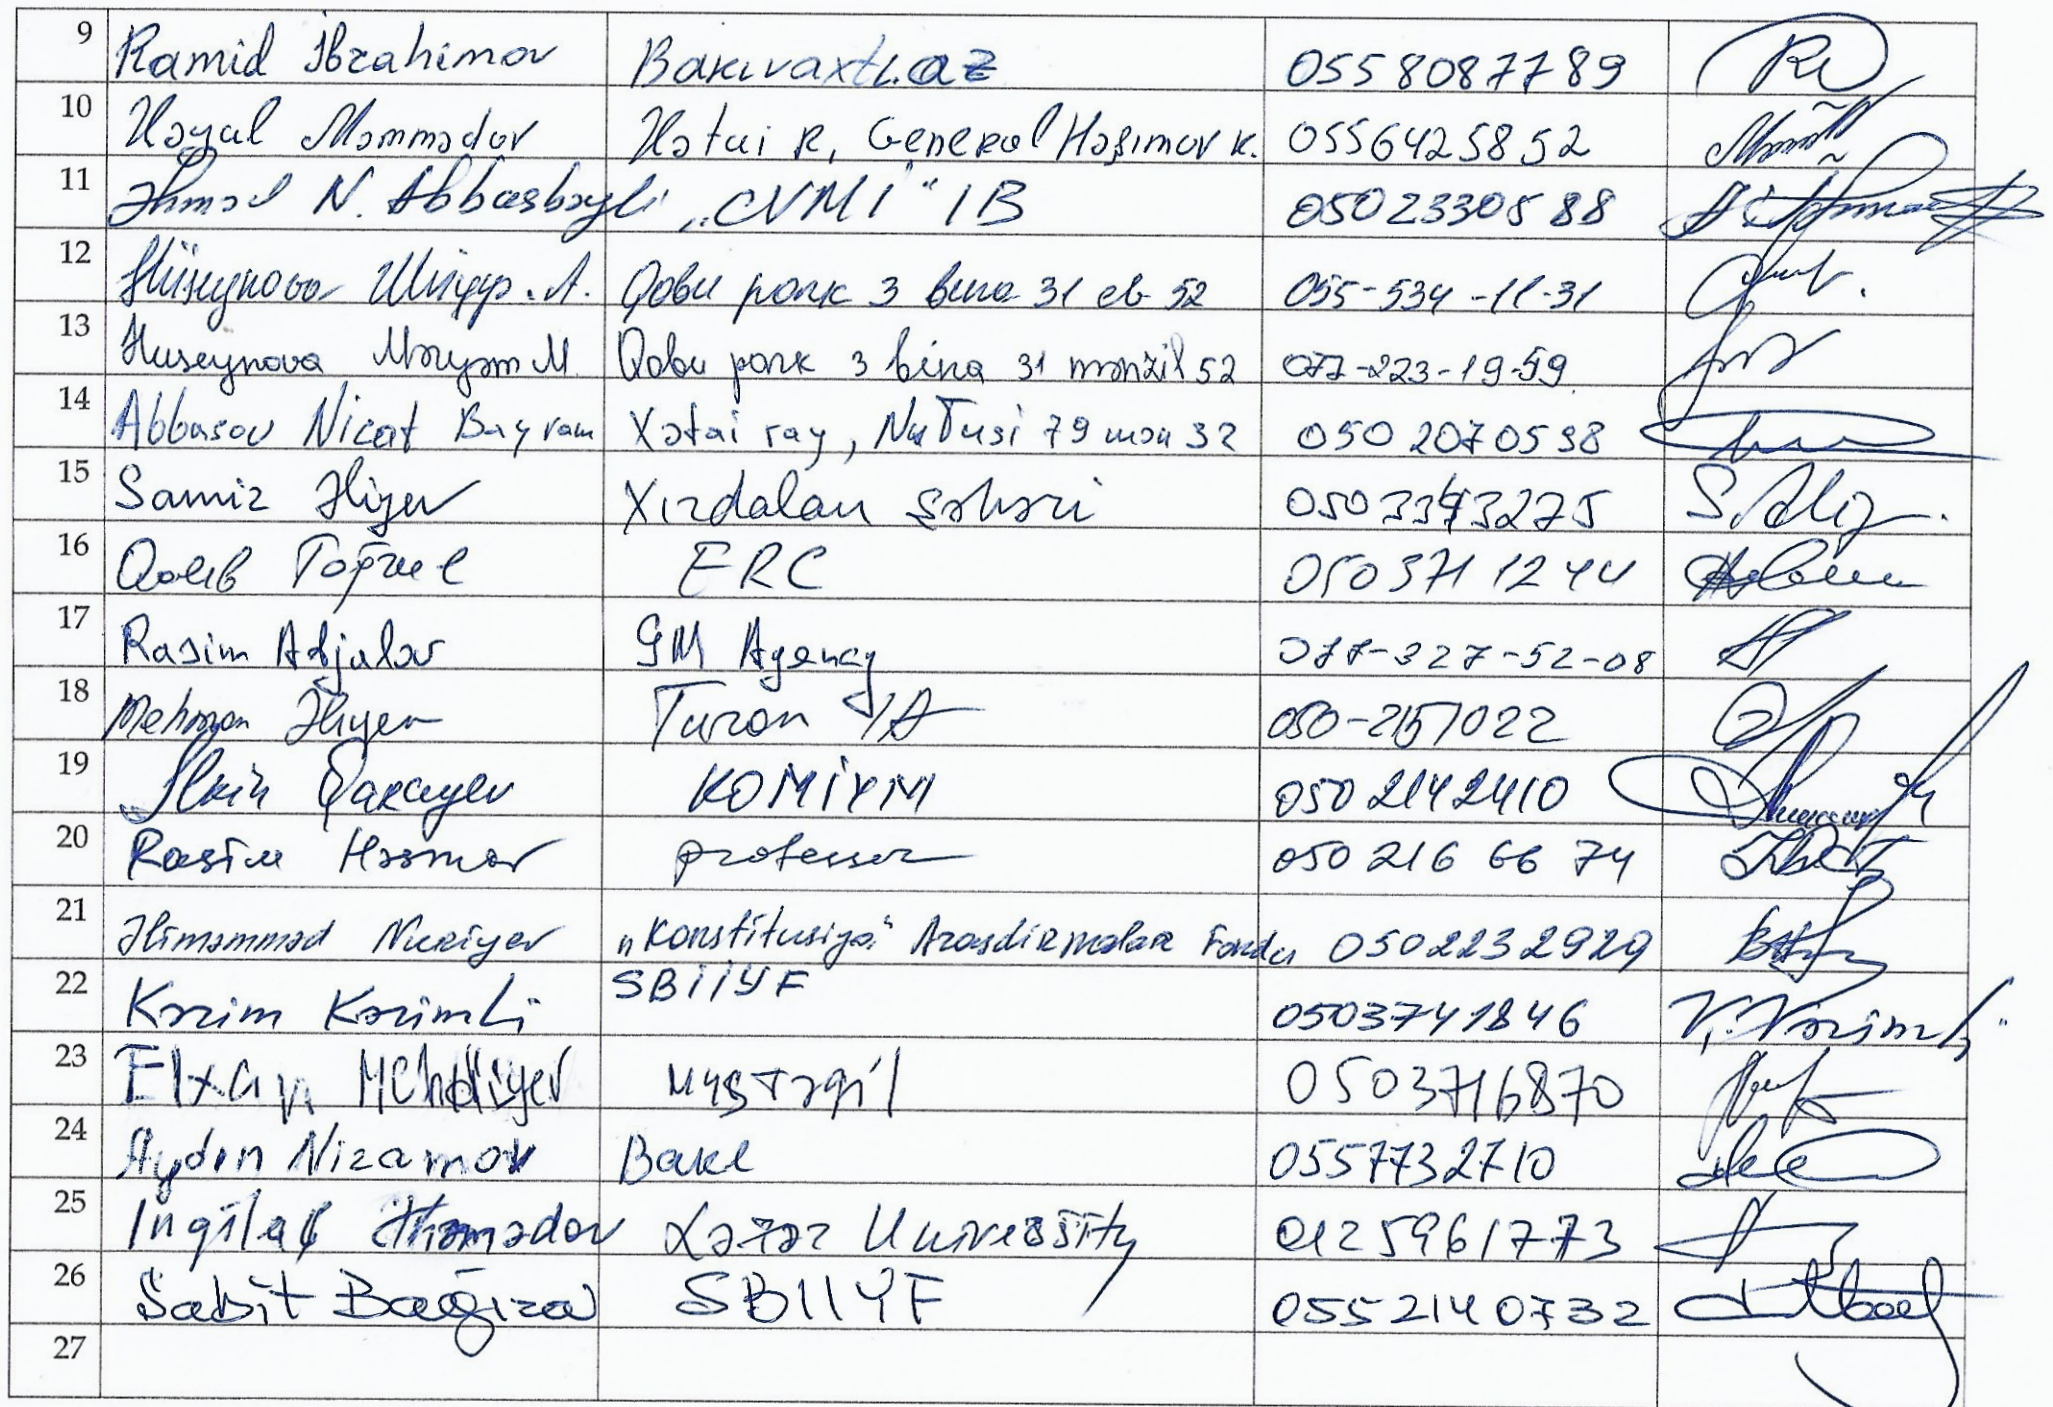 9 Ramid İbrahimov Bakıvaxtı.az 0558087789
10 Həyal Məmmədov Hətai R, General Həşimov k. 0556425852
11 Əhməd N. Abbasbəyli „CVMİ“ İB 0502330588
12 Hüseynova A. Qobu park 3 bina 31 eb 52 055-534-11-31
13 Huseynova Məryəm M. Qobu park 3 bina 31 mənzil 52 077-223-19-59
14 Abbasov Nicat Bayram Xətai ray, Nə Tusi 79 mən 32 050 2070538
15 Samir Əliyev Xırdalan şəhəri 0503393275
16 Qalib Toğrul ERC 050 371 12 44
17 Rasim Adjalov GM Agency 077-327-52-08
18 Mehman Əliyev Turan İA 050-2151022
19 İlkin Qarayev KOMİYM 050 2142410
20 Rasim Həsmov professor 050 216 66 74
21 Əliməmməd Nuriyev „Konstitusiya“ Araşdırmalar Fondu 0502232929
22 Kərim Kərimli SBİİYF 0503741846
23 Elxan Mehdiyev Mustəqil 0503716870
24 Aydın Nizamov Bakı 0557732710
25 İnqilab Əhmədov Xəzər University 0125961773
26 Sabit Bağırov SBIIYF 0552140732
27